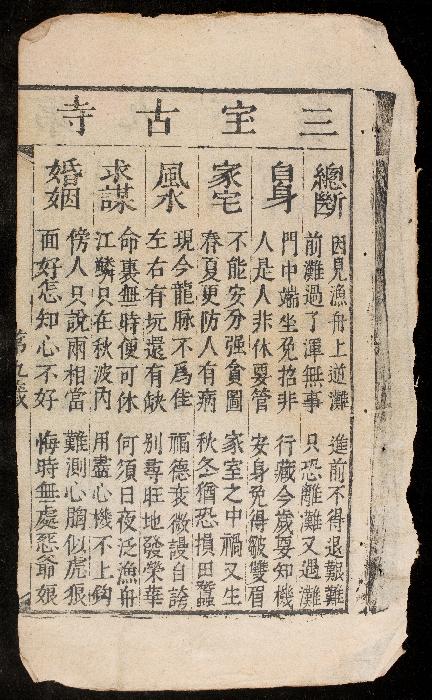 三宝古寺
總斷
因見漁舟上逆灘 進前不得退艱難
前灘過了渾無事 只恐離灘又過灘
自身
門中端坐免招非 行藏今歲要知機
人是人非休要管 安身免得皺雙眉
家宅
不能安分强貪圖 家室之中禍又生
春夏更防人有病 秋冬猶恐損田蠶
風水
現今龍脉不爲佳 福德衰微謾自誇
左右有坑還有缺 別尋旺地發榮華
求謀
命裏無時便可休 何須日夜泛漁舟
江鱗只在秋波內 用盡心機不上鈎
婚姻
傍人只說兩相當 難測心腸似虎狼
面好怎知心不好 悔時無處怨爺娘